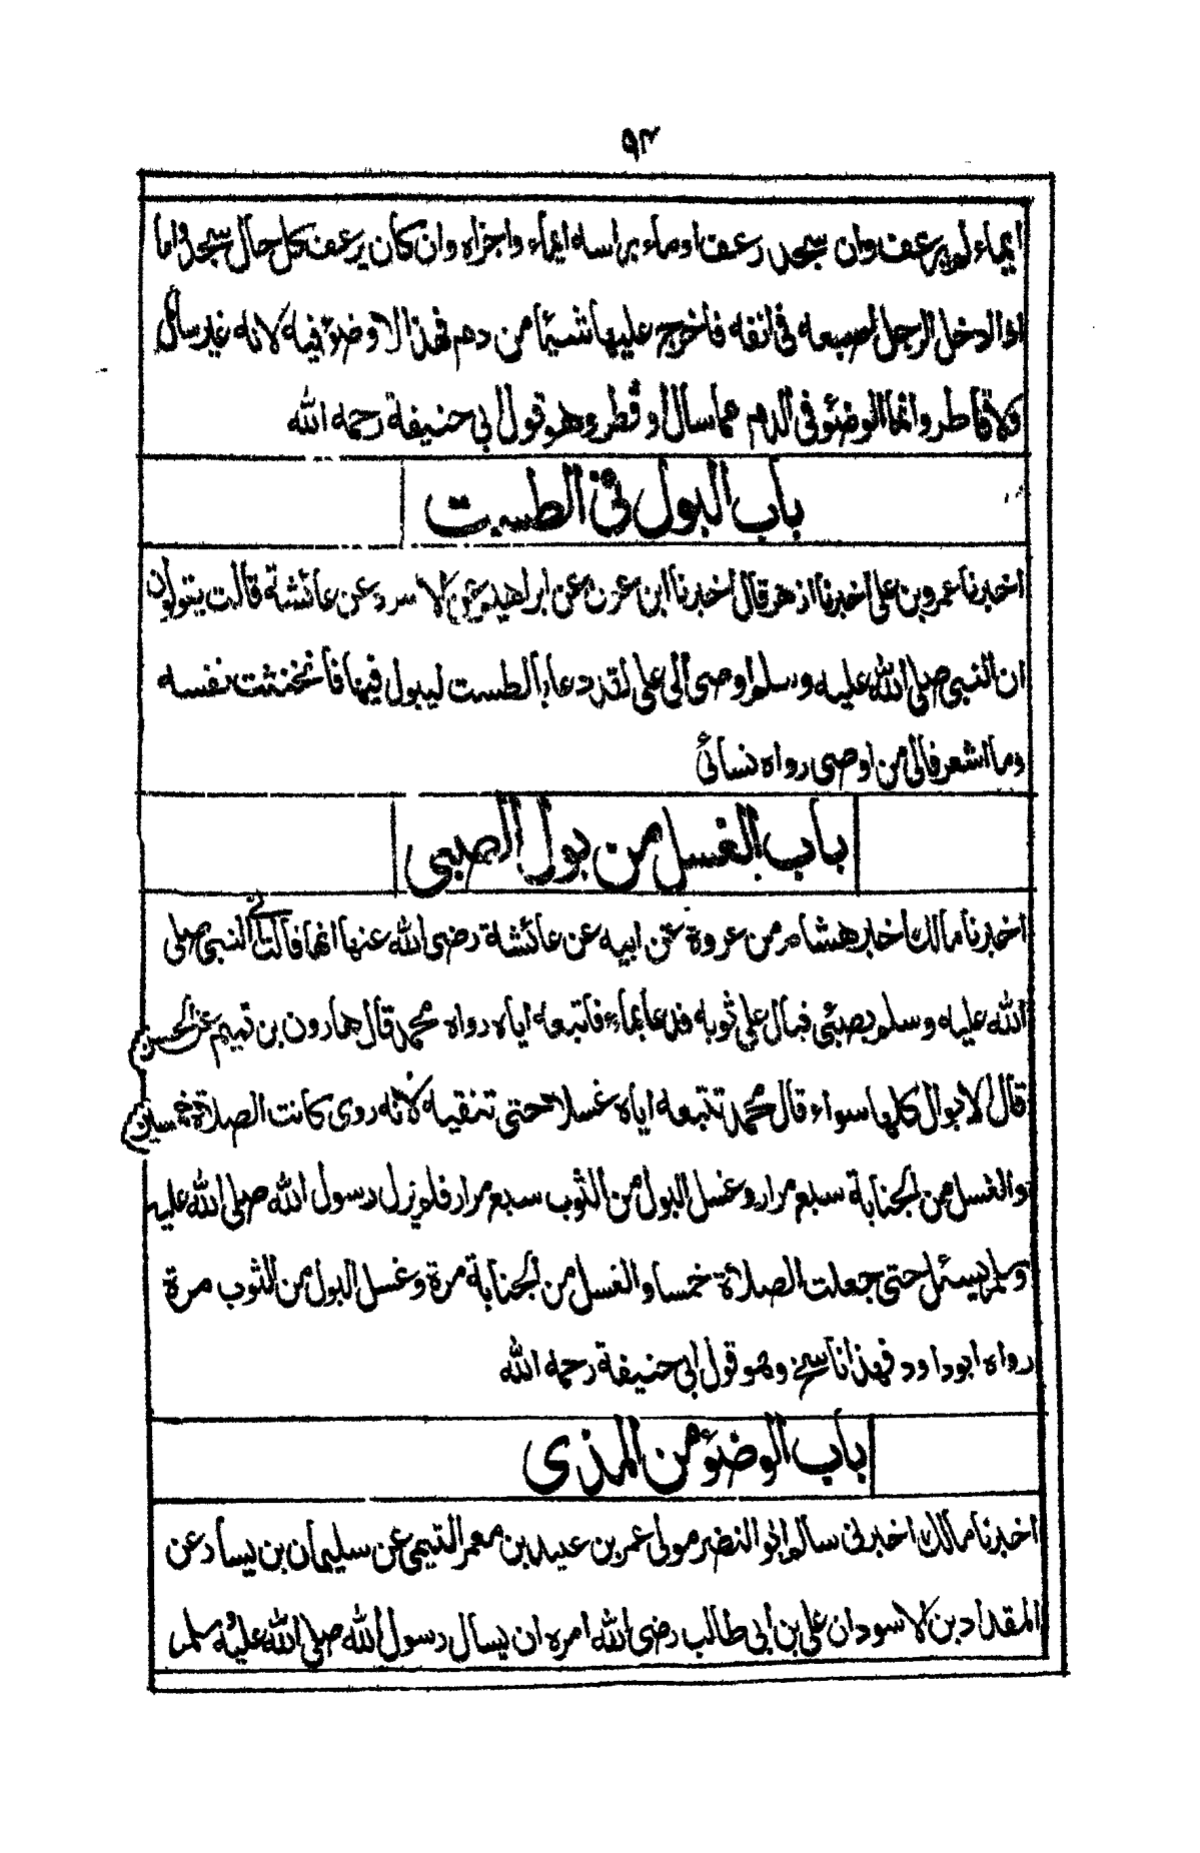 ٩٣
ايماء لم يرعف وان سجد رعف اوماء براسه ايماء واجزاه وان كان يرعف كل حال سجد واما
اذا ادخل الرجل اصبعه في انفه فاخرج عليها شيئا من دم فهذا لا وضوء فيه لانه غير سائل
ولا قاطر وانما الوضوء في الدم مما سال او قطر وهو قول ابي حنيفة رحمه الله
باب البول في الطست
اخبرنا عمرو بن علي اخبرنا ازهر قال اخبرنا ابن عون عن ابراهيم عن الاسود عن عائشة قالت يقولون
ان النبي صلى الله عليه وسلم اوصى الى علي لقد دعا بالطست ليبول فيها فانخنثت نفسه
وما اشعر فالى من اوصى رواه نسائي
باب الغسل من بول الصبي
اخبرنا مالك اخبر هشام من عروة عن ابيه عن عائشة رضى الله عنها انها قالت اتى النبي صلى
الله عليه وسلم بصبي فبال على ثوبه فدعا بماء فاتبعه اياه رواه محمد قال هارون بن تميم عن الحسن
قال الابوال كلها سواء قال محمد تتبعه اياه غسلا حتى تنقيه لانه روى كانت الصلاة خمسين
والغسل من الجنابة سبع مرار وغسل البول من الثوب سبع مرار فلم يزل رسول الله صلى الله عليه
وسلم يسئل حتى جعلت الصلاة خمسا والغسل من الجنابة مرة وغسل البول من الثوب مرة
رواه ابو داود فهذا ناسخ وهو قول ابي حنيفة رحمه الله
باب الوضوء من المذى
اخبرنا مالك اخبرنى سالم ابو النضر مولى عمر بن عبيد بن معمر التيمى عن سليمان بن يسار عن
المقداد بن الاسود ان على بن ابي طالب رضى الله امره ان يسال رسول الله صلى الله عليه وسلم